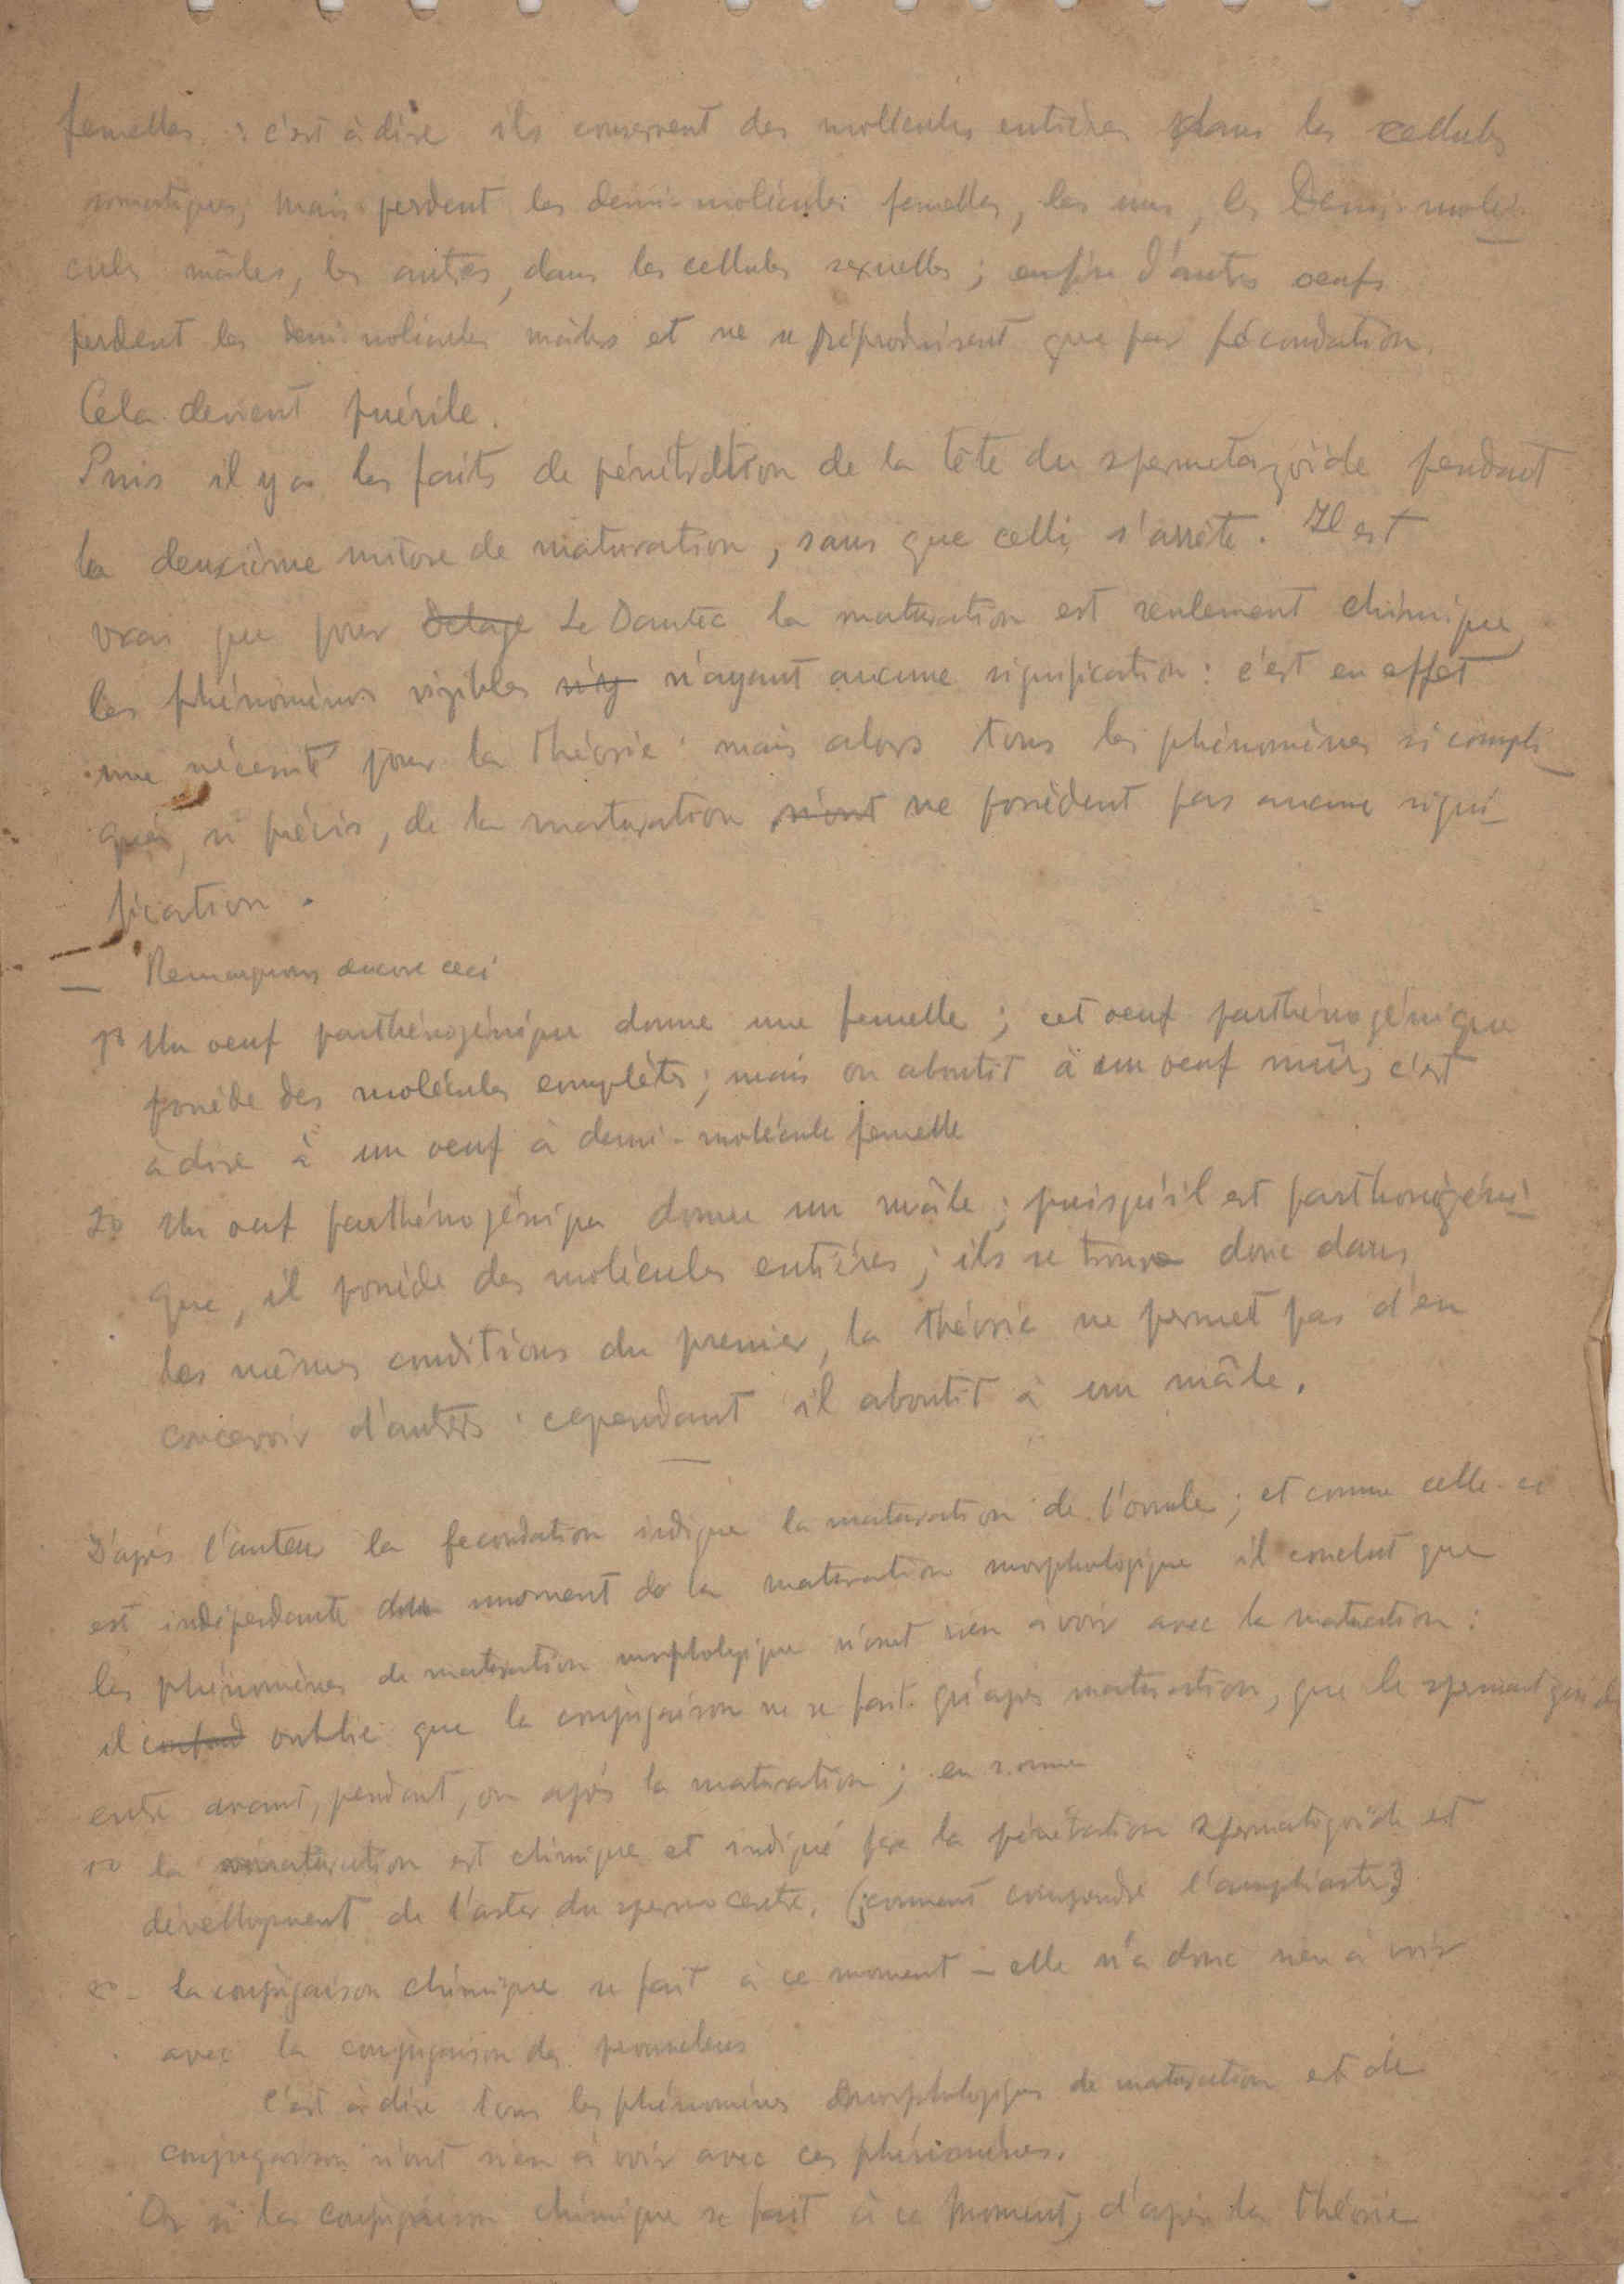 femelles : c'est à dire ils conservent des mollécules entières dans les cellules
somatiques, mais perdent les demi-molécules femelles, les uns, les Demi-molé-
cules mâles, les autres, dans les cellules sexuelles ; enfin d'autres oeufs
perdent les demi molécules mâles et ne se reproduisent que par fécondation.
Cela devient puérile.
Puis il y a les faits de pénétration de la tête du spermetozoïde pendant
la deuxième mitose de maturation, sans que celle s'arrête. Il est
vrai que pour Delage Le Dantec la maturation est seulement chimique,
les phénomènes vizibles n'ay n'ayant aucune signification : c'est en effet
une nécessité pour la théorie : mais alors tous les phénomènes si compli-
qués, si précis, de la maturation n'ont ne possèdent pas aucune signi-
fication.
— Remarquons encore ceci
1º Un oeuf parthénogénique donne une femelle ; cet oeuf parthénogénique
possède des molécules complètes ; mais on aboutit à un oeuf mûr, c'est
à dire à un oeuf à demi-molécule femelle
2º Un oeuf parthénogénique donne un mâle ; puisqu'il est parthenogéni-
que, il possède des molécules entières ; ils se trouve donc dans
les mêmes conditions du premier, la théorie ne permet pas d'en
concevoir d'autres : cependant il aboutit à un mâle.
—
D'après l'auteur la fecondation indique la maturation de l'ovule ; et comme celle-ci
est indépendante du moment de la maturation morphologique il conclut que
les phénomènes de maturation morphologique n'ont rien à voir avec la maturation :
il confond oublie que la conjugaison ne se fait qu'après maturation, que le spermatozoïde
entre avant, pendant, ou après la maturation ; en somme
1º la maturation est chimique et indiqué par la pénétration spermatozoïde et
dévellopment de l'aster du spermocentre. (comment comprendre l'amphiaster?)
2º - La conjugaison chimique se fait à ce moment - elle n'a donc rien à voir
avec la conjugaison des pronucleus
C'est à dire tous les phénomènes morphologiques de maturation et de
conjugaison n'ont rien à voir avec ces phénomènes.
Or si la conjugaison chimique se fait à ce moment, d'après la théorie